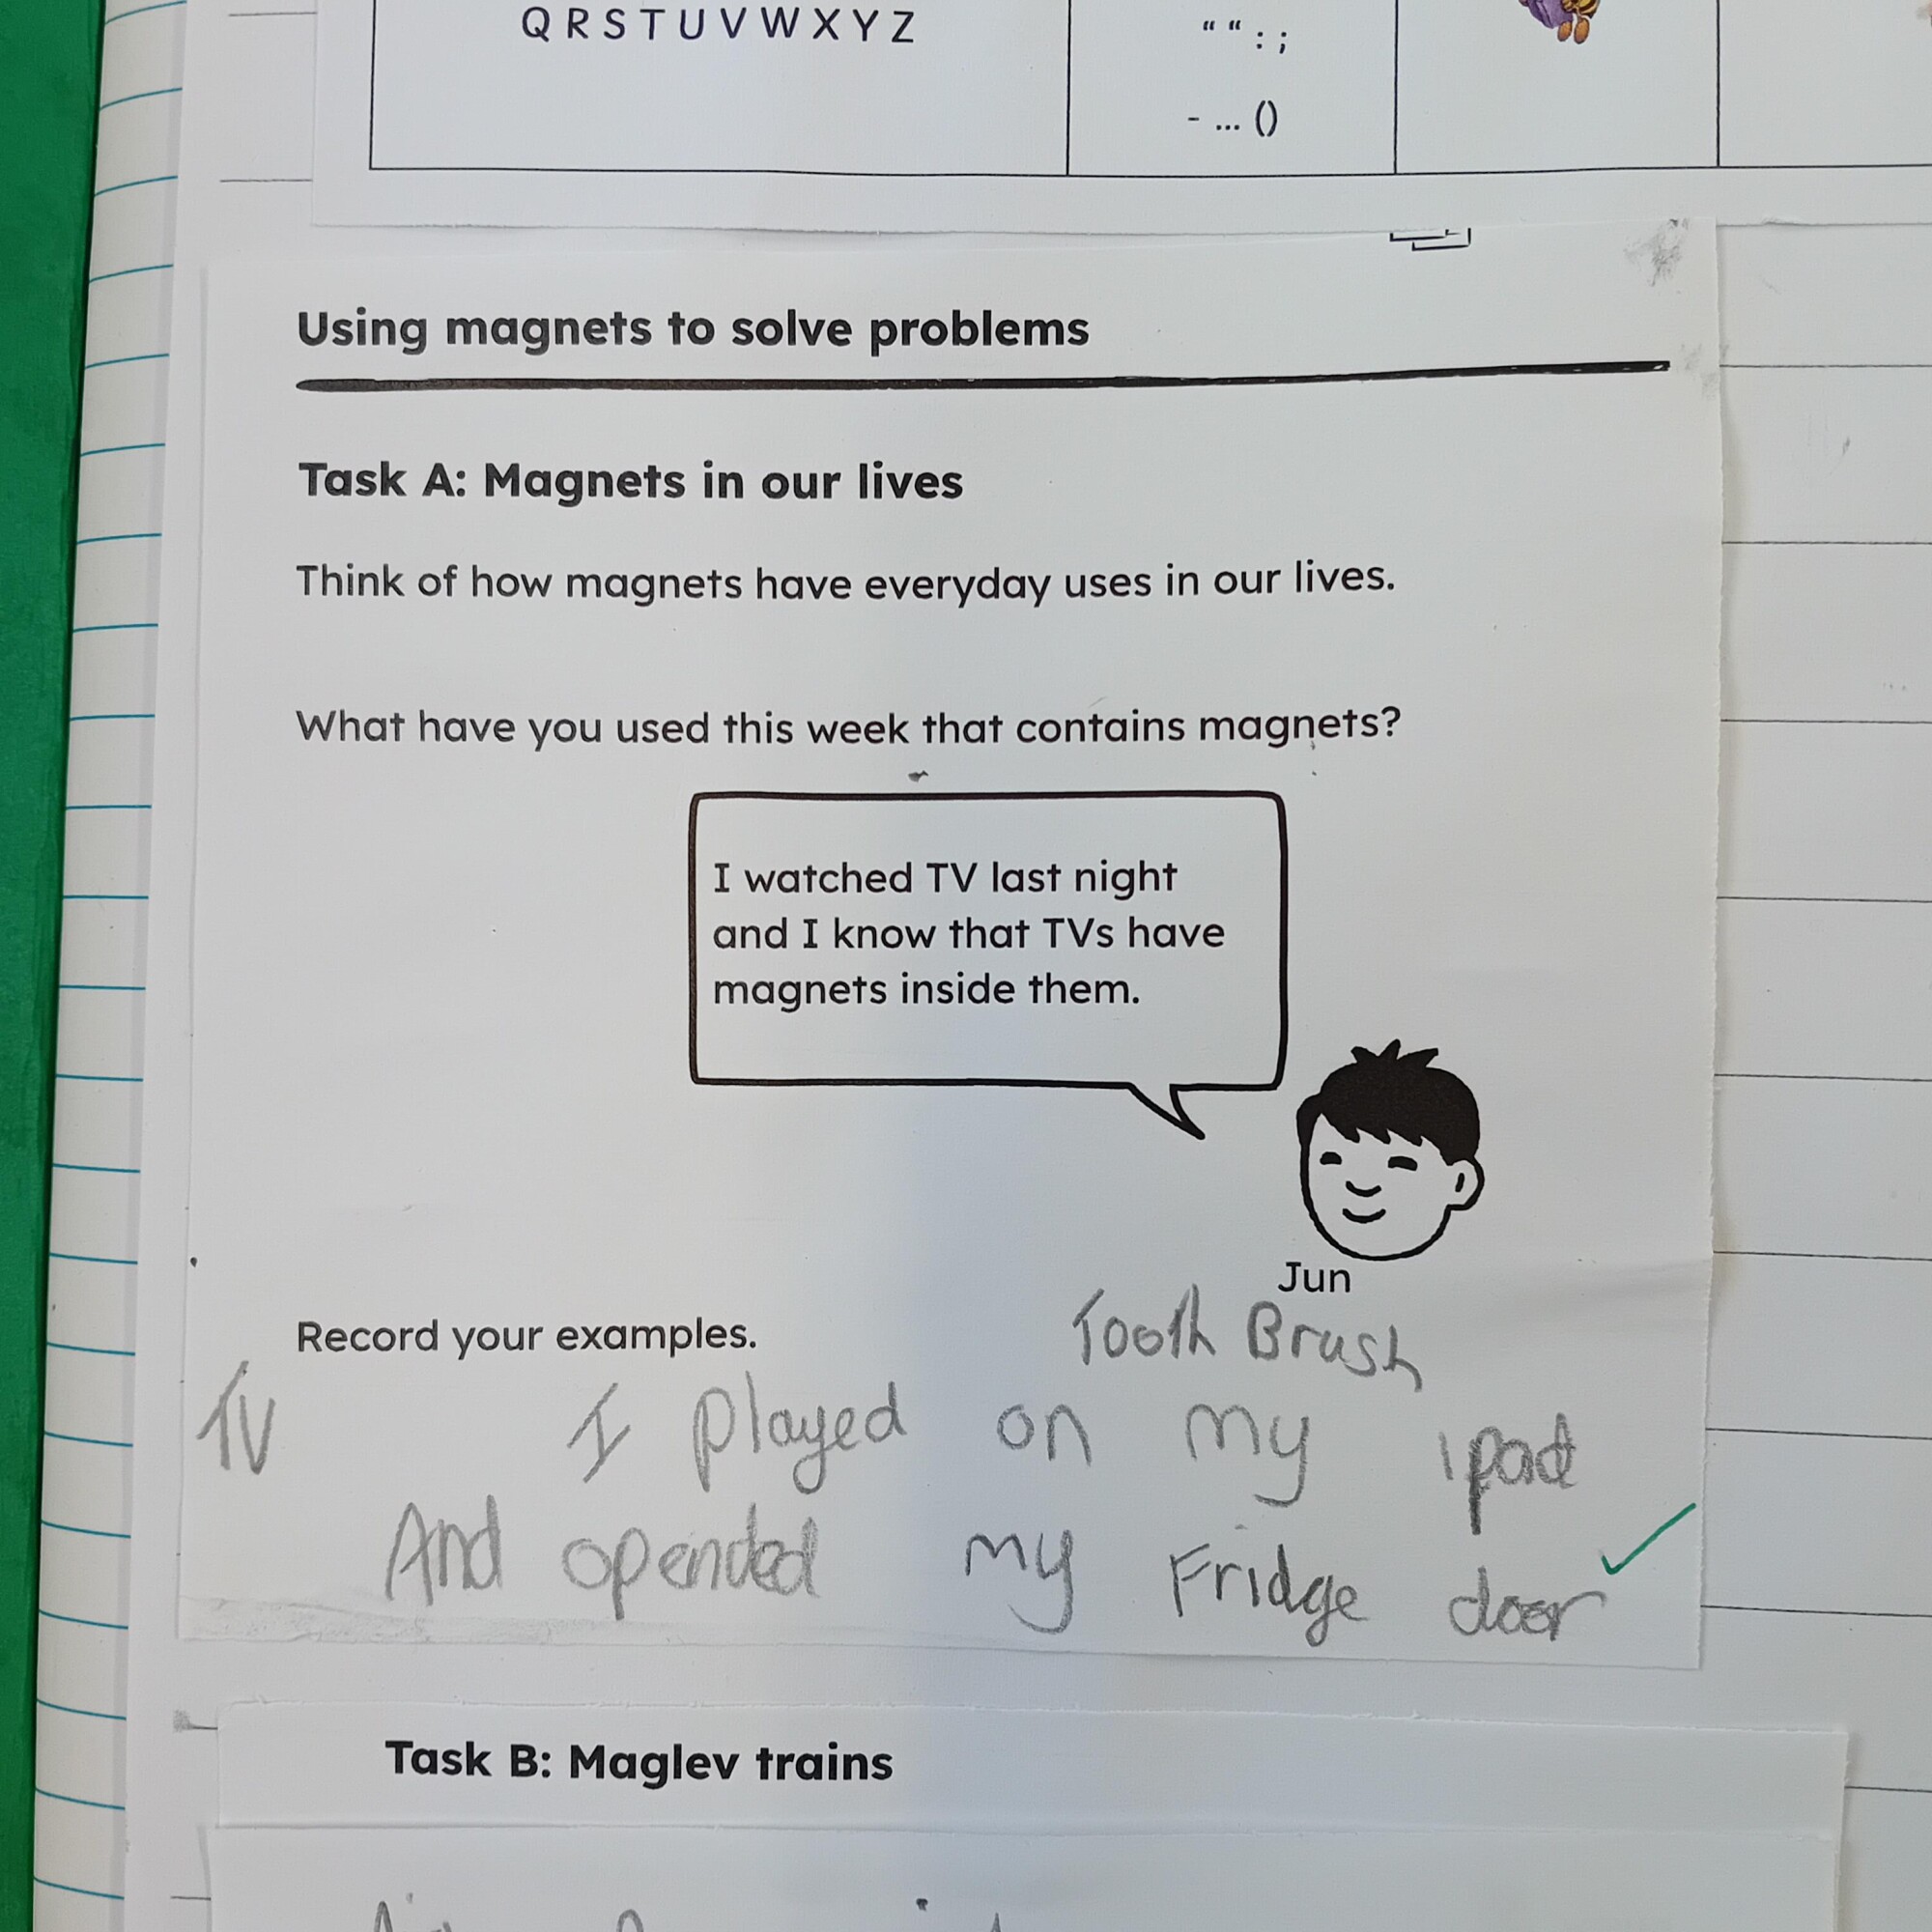 Q R S T U V W X Y Z
“ “ : ;
- ... ()
Using magnets to solve problems
Task A: Magnets in our lives
Think of how magnets have everyday uses in our lives.
What have you used this week that contains magnets?
I watched TV last night
and I know that TVs have
magnets inside them.
Jun
Record your examples.
Tooth Brush
TV I played on my ipad
And opended my Fridge door
Task B: Maglev trains